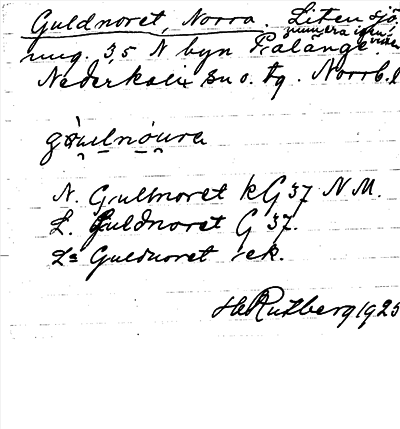 Guldnoret, Norra. Liten sjö,
numera igen-
ung. 35 N byn Pålänge.
Nederkalix sn o. tg. Norrb. l
N. Gullnoret kG 37 NM.
L. Guldnoret G 37.
Ls Guldnoret ek.
H Rutberg 1925